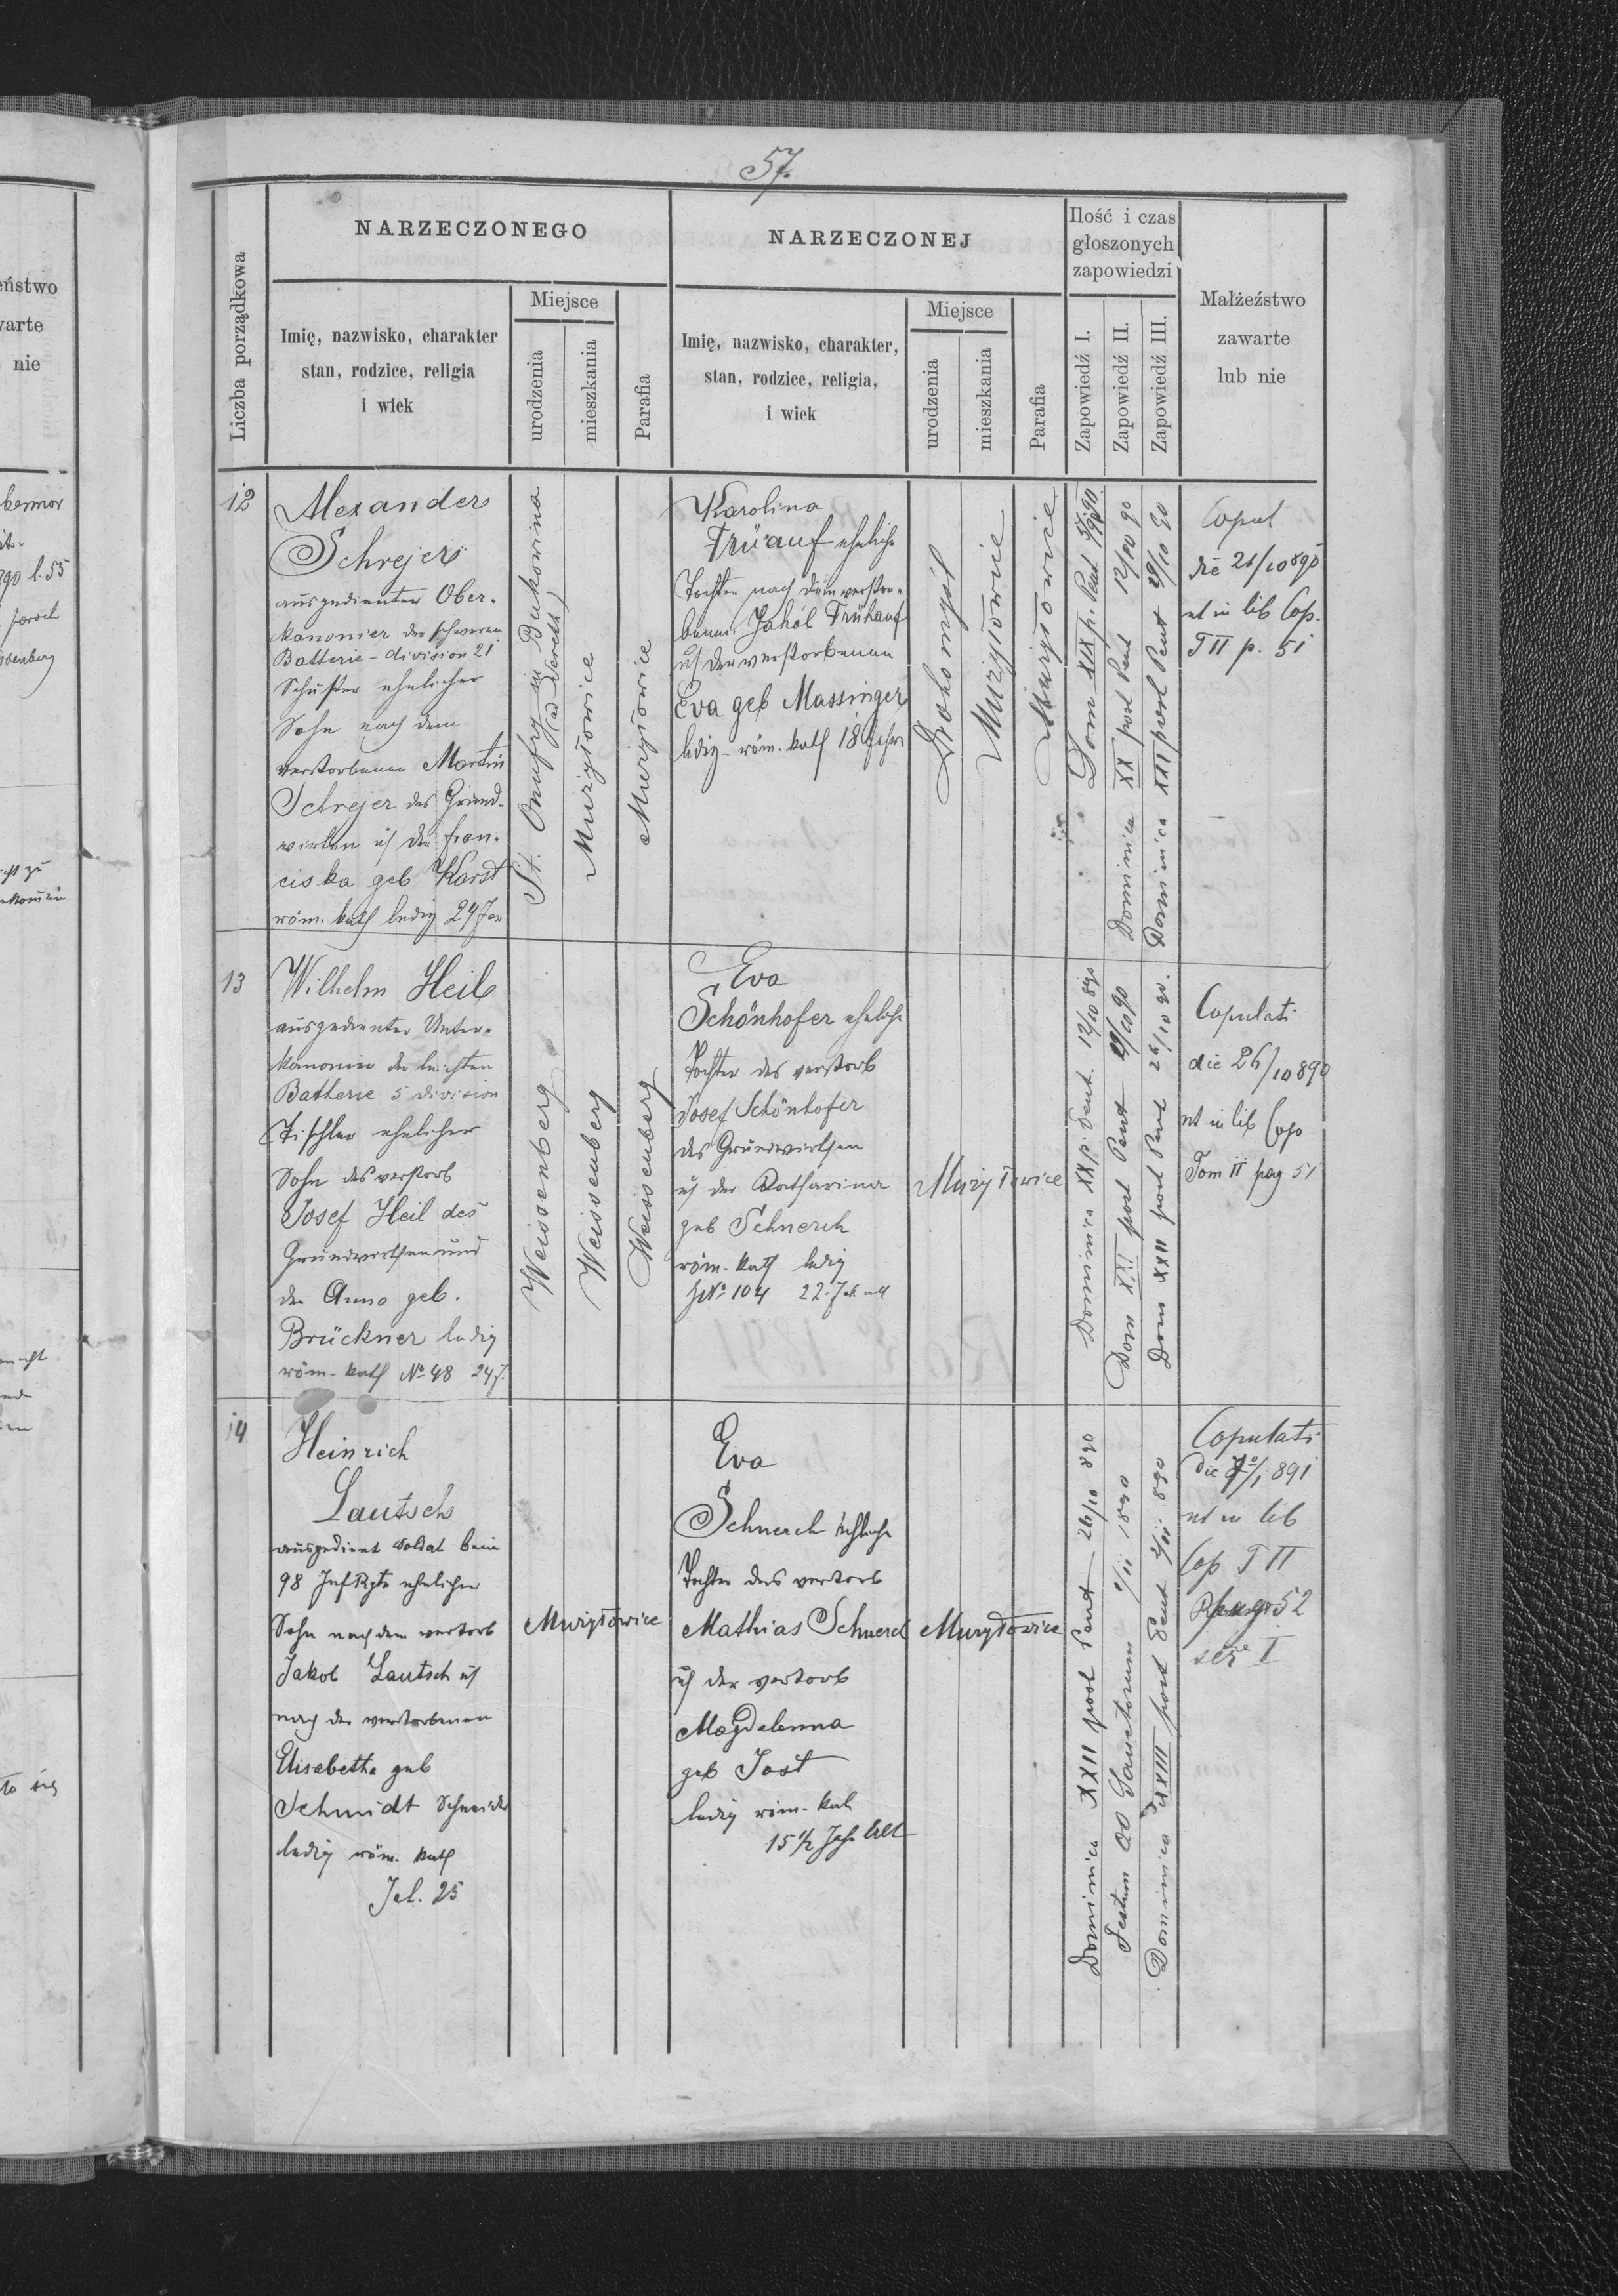 57.
NARZECZONEGO
NARZECZONEJ
Ilość i czas
głoszonych
zapowiedzi
Małżeźstwo
zawarte
lub nie
Liczba porządkowa
Imię, nazwisko, charakter
stan, rodzice, religia
i wiek
Miejsce
urodzenia
mieszkania
Parafia
Imię, nazwisko, charakter,
stan, rodzice, religia,
i wiek
Miejsce
urodzenia
mieszkania
Parafia
Zapowiedź I.
Zapowiedź II.
Zapowiedź III.
12
Alexander
Schrejer
ausgedienter Ober-
kanonier der schweren
Batterie-division 21
Schuster ehelicher
Sohn nach dem
verstorbenen Martin
Schrejer des Grund-
wirthen u der Fran-
ciska geb Karst
röm. kath ledig 24
St. Onufry in Bukowina
(ad Sereth)
Mużyłowice
Mużyłowice
Karolina
Früauf eheliche
Tochter nach dem verstor-
benen Jakób Frühauf
u der verstorbenen
Eva geb Massinger
ledig röm. kath 18 Jahre
Dohomyśl
Mużyłowice
Mużyłowice
Dom XIX p. Pent
Dominica XX post Pent 12/10 90
Dominica XXI post Pent 19/10 90
Copul
die 26/10 890
ut in lib Cop.
T II p. 51
13
Wilhelm Heil
ausgedienter Unter-
kanonier der leichten
Batherie 5 division
Tischler ehelicher
Sohn des verstorb
Josef Heil des
Grundwirthen und
der Anna geb.
Brückner ledig
röm. kath No 48 24 J.
Weissenberg
Weissenberg
Weissenberg
Eva
Schönhofer eheliche
Tochter des verstorb
Josef Schönhofer
des Grundwirthen
u der Katharina
geb Schnerch
röm. kath ledig
No 104 22 J. alt
Mużyłowice
Dominica XX p. Pent. 12/10 890
Dom XXI post Pent 19/10 90
Dom XXII post Pent 26/10 90.
Copulati
die 26/10 890
ut in lib Cop
Tom II pag 51
14
Heinrich
Lautsch
ausgedient Soldat beim
98 Inf Rgte ehelicher
Sohn nach dem verstorb
Jakob Lautsch u
nach der verstorbenen
Elisabetha geb
Schmidt Schneider
ledig röm. kath
25
Mużyłowice
Eva
Schnerch eheliche
Tochter des verstorb
Mathias Schnerch
u der verstorb
Magdalenna
geb Jost
ledig röm. kath
15 1/2 Jahr alt
Mużyłowice
Dominica XXII post Pent 26/10 890
Festum OO Sanctorum 1/11 1890
Dominica XXIII post Pent 2/11 890
Copulati
die 891
ut in lib
Cop T II
pag 52
I